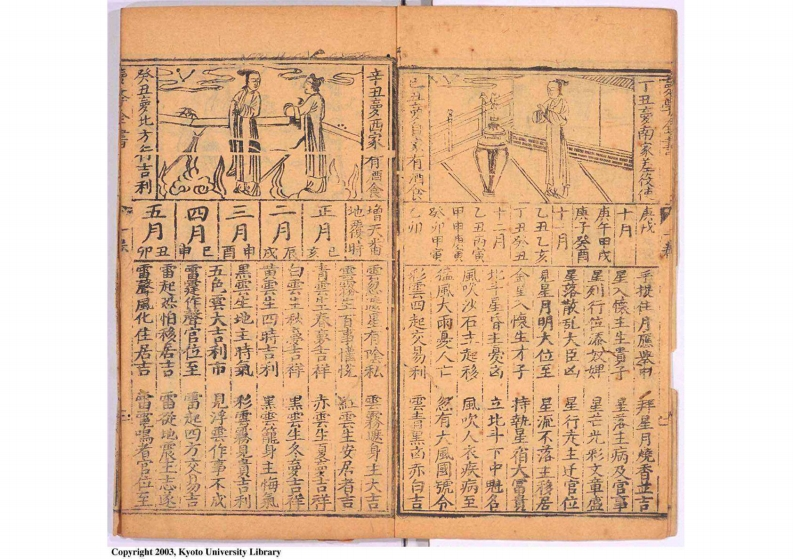 丁丑夢南家差役使
庚戌
十月
庚午甲戌
庚子癸酉
十一月
乙丑乙亥
丁丑癸丑
十二月
乙丑丙寅
癸卯甲寅
乙卯
星入懷主生貴子
星列行位添奴婢
星落散乱大臣凶
見星月明大位至
金星入懷生才子
北斗星昏主憂凶
風吹沙石主起移
狂風大雨憂人亡
彩雲四起交易利
拜星月燒香並吉
星落主病及官事
星芒光彩文章盛
星行走主迁官位
星流不落主移居
持執星宿大富貴
立北斗下中魁名
風吹人衣疾病至
忽有大風國號令
雲青黑凶赤白吉
辛丑夢西家有酒食
癸丑夢北方行吉利
增天番
地覆時
正月
巳
亥
二月
辰
戌
三月
申
酉
四月
巳
申
五月
丑
卯
雲忽遮星有陰私
青雲生春夢吉祥
白雲生秋夢吉祥
黃雲生四時吉利
黑雲生地主時氣
五色雲大吉利市
雷霆作聲官位至
雷起恐怕移居吉
雷聲風化住居吉
雲霧遮身主大吉
紅雲生安居者吉
赤雲生夏夢吉祥
黑雲生冬夢吉祥
黑雲籠身主悔氣
彩雲霧見貴吉利
見浮雲作事不成
雷起四方交易吉
雷從地震主志遂
雷電鳴者官位至
Copyright 2003, Kyoto University Library